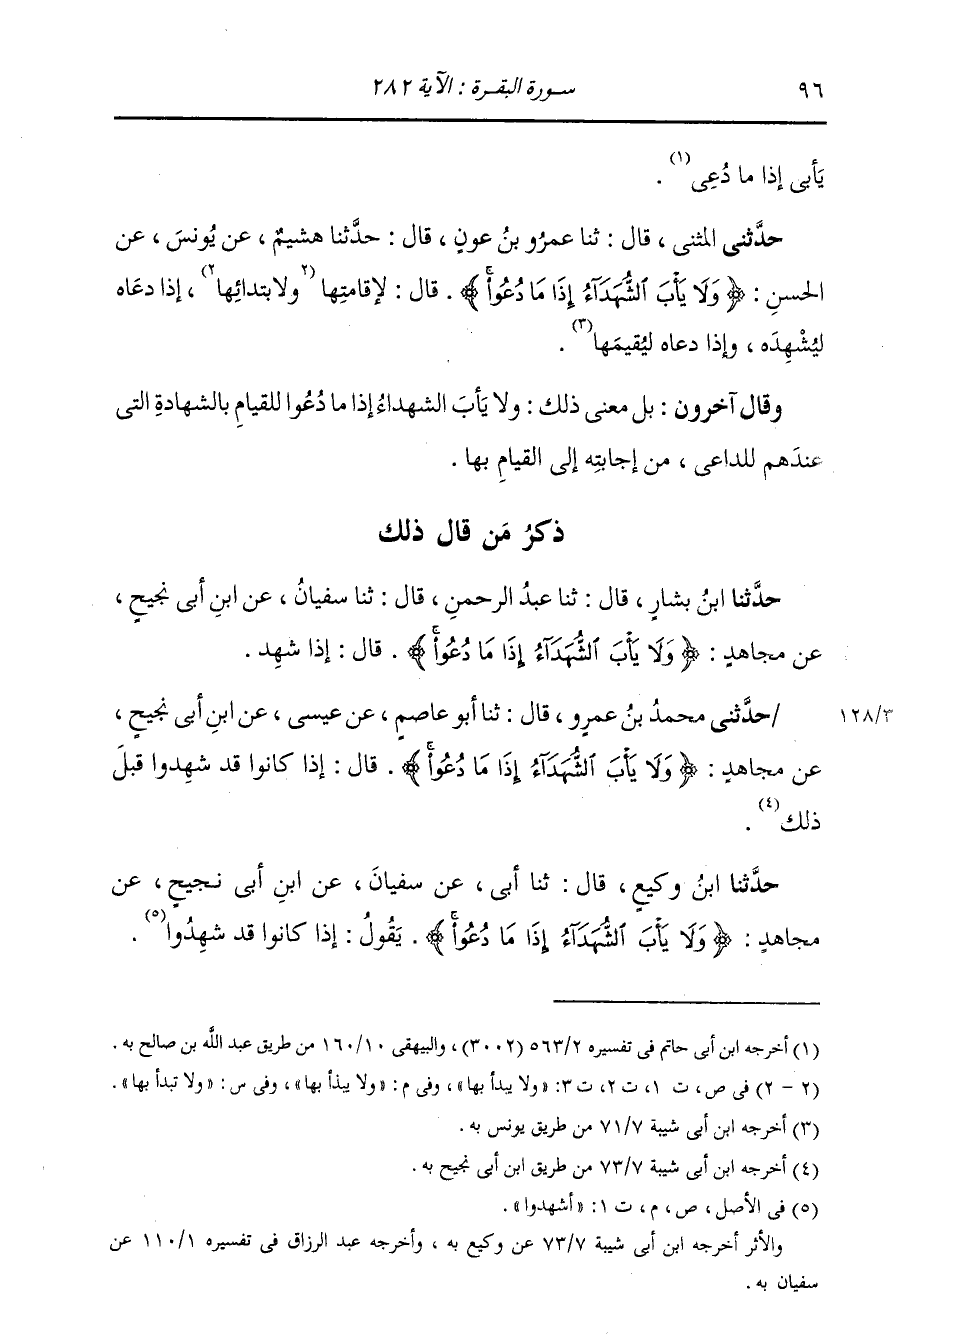 ٩٦ سورة البقرة : الآية ٢٨٢
يَأبى إذا ما دُعِى(١) .
حدَّثنى المثنى ، قال : ثنا عمرُو بنُ عونٍ ، قال : حدَّثنا هشيمٌ ، عن يُونسَ ، عن
الحسنِ : ﴿ وَلَا يَأْبَ ٱلشُّهَدَآءُ إِذَا مَا دُعُواْۚ ﴾ . قال : لإقامتِها (٢ ولا بتدائِها٢) ، إذا دعَاه
ليُشْهِدَه ، وإذا دعاه ليُقيمَها(٣) .
وقال آخرون : بل معنى ذلك : ولا يَأبَ الشهداءُ إذا ما دُعُوا للقيامِ بالشهادةِ التى
عندَهم للداعى ، من إجابتِه إلى القيامِ بها .
ذكرُ مَن قال ذلك
حدَّثنا ابنُ بشارٍ ، قال : ثنا عبدُ الرحمنِ ، قال : ثنا سفيانُ ، عن ابنِ أبى نجيحٍ ،
عن مجاهدٍ : ﴿ وَلَا يَأْبَ ٱلشُّهَدَآءُ إِذَا مَا دُعُواْۚ ﴾ . قال : إذا شهِد .
١٢٨/٣ /حدَّثنى محمدُ بنُ عمرٍو ، قال : ثنا أبو عاصمٍ ، عن عيسى ، عن ابنِ أبى نجيحٍ ،
عن مجاهدٍ : ﴿ وَلَا يَأْبَ ٱلشُّهَدَآءُ إِذَا مَا دُعُواْۚ ﴾ . قال : إذا كانوا قد شهِدوا قبلَ
ذلك(٤) .
حدَّثنا ابنُ وكيعٍ ، قال : ثنا أبى ، عن سفيانَ ، عن ابنِ أبى نجيحٍ ، عن
مجاهدٍ : ﴿ وَلَا يَأْبَ ٱلشُّهَدَآءُ إِذَا مَا دُعُواْۚ ﴾ . يَقُولُ : إذا كانوا قد شهِدُوا(٥) .
(١) أخرجه ابن أبى حاتم فى تفسيره ٥٦٣/٢ (٣٠٠٢) ، والبيهقى ١٦٠/١٠ من طريق عبد اللَّه بن صالح به .
(٢ - ٢) فى ص ، ت ١، ت ٢، ت ٣: «ولا يبدأ بها» ، وفى م : «ولا يبذأ بها» ، وفى س : «ولا تبدأ بها» .
(٣) أخرجه ابن أبى شيبة ٧١/٧ من طريق يونس به .
(٤) أخرجه ابن أبى شيبة ٧٣/٧ من طريق ابن أبى نجيح به .
(٥) فى الأصل ، ص ، م ، ت ١: «أشهدوا» .
والأثر أخرجه ابن أبى شيبة ٧٣/٧ عن وكيع به ، وأخرجه عبد الرزاق فى تفسيره ١١٠/١ عن
سفيان به .